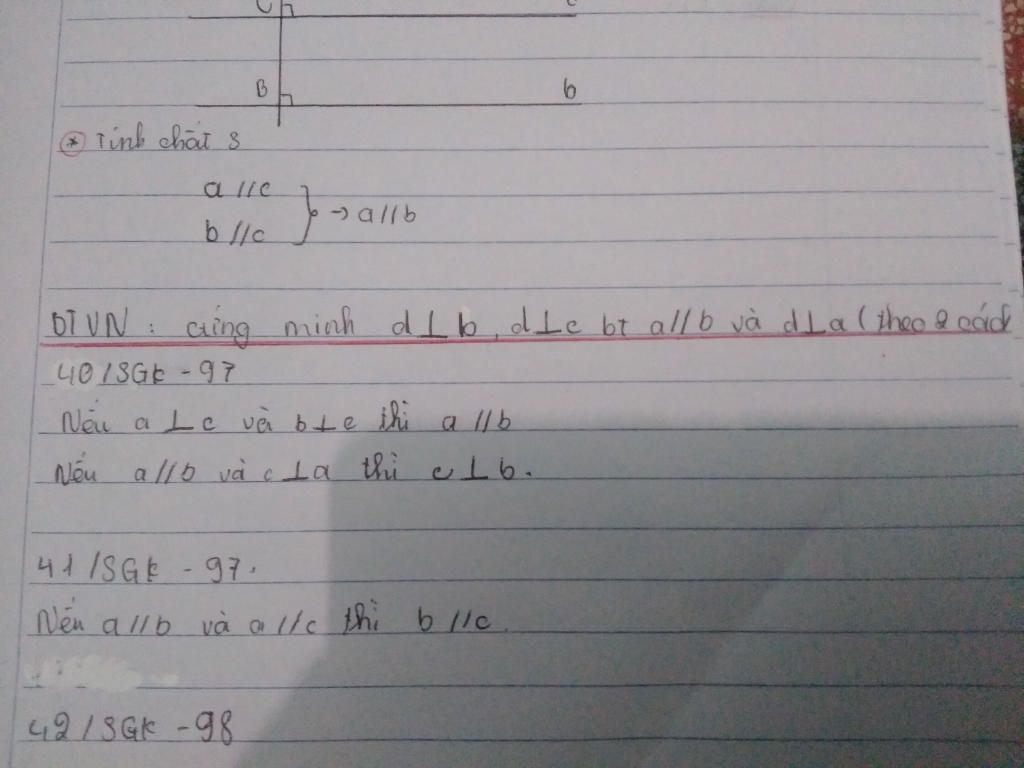 B b
* Tính chất 3
a // c
b // c
→ a // b
BTVN : cứng minh d ⊥ b, d ⊥ c bt a // b và d ⊥ a ( theo 2 cách
40 / SGK - 97
Nếu a ⊥ c và b ⊥ c thì a // b
Nếu a // b và c ⊥ a thì c ⊥ b.
41 / SGK - 97.
Nếu a // b và a // c thì b // c.
42 / SGK - 98